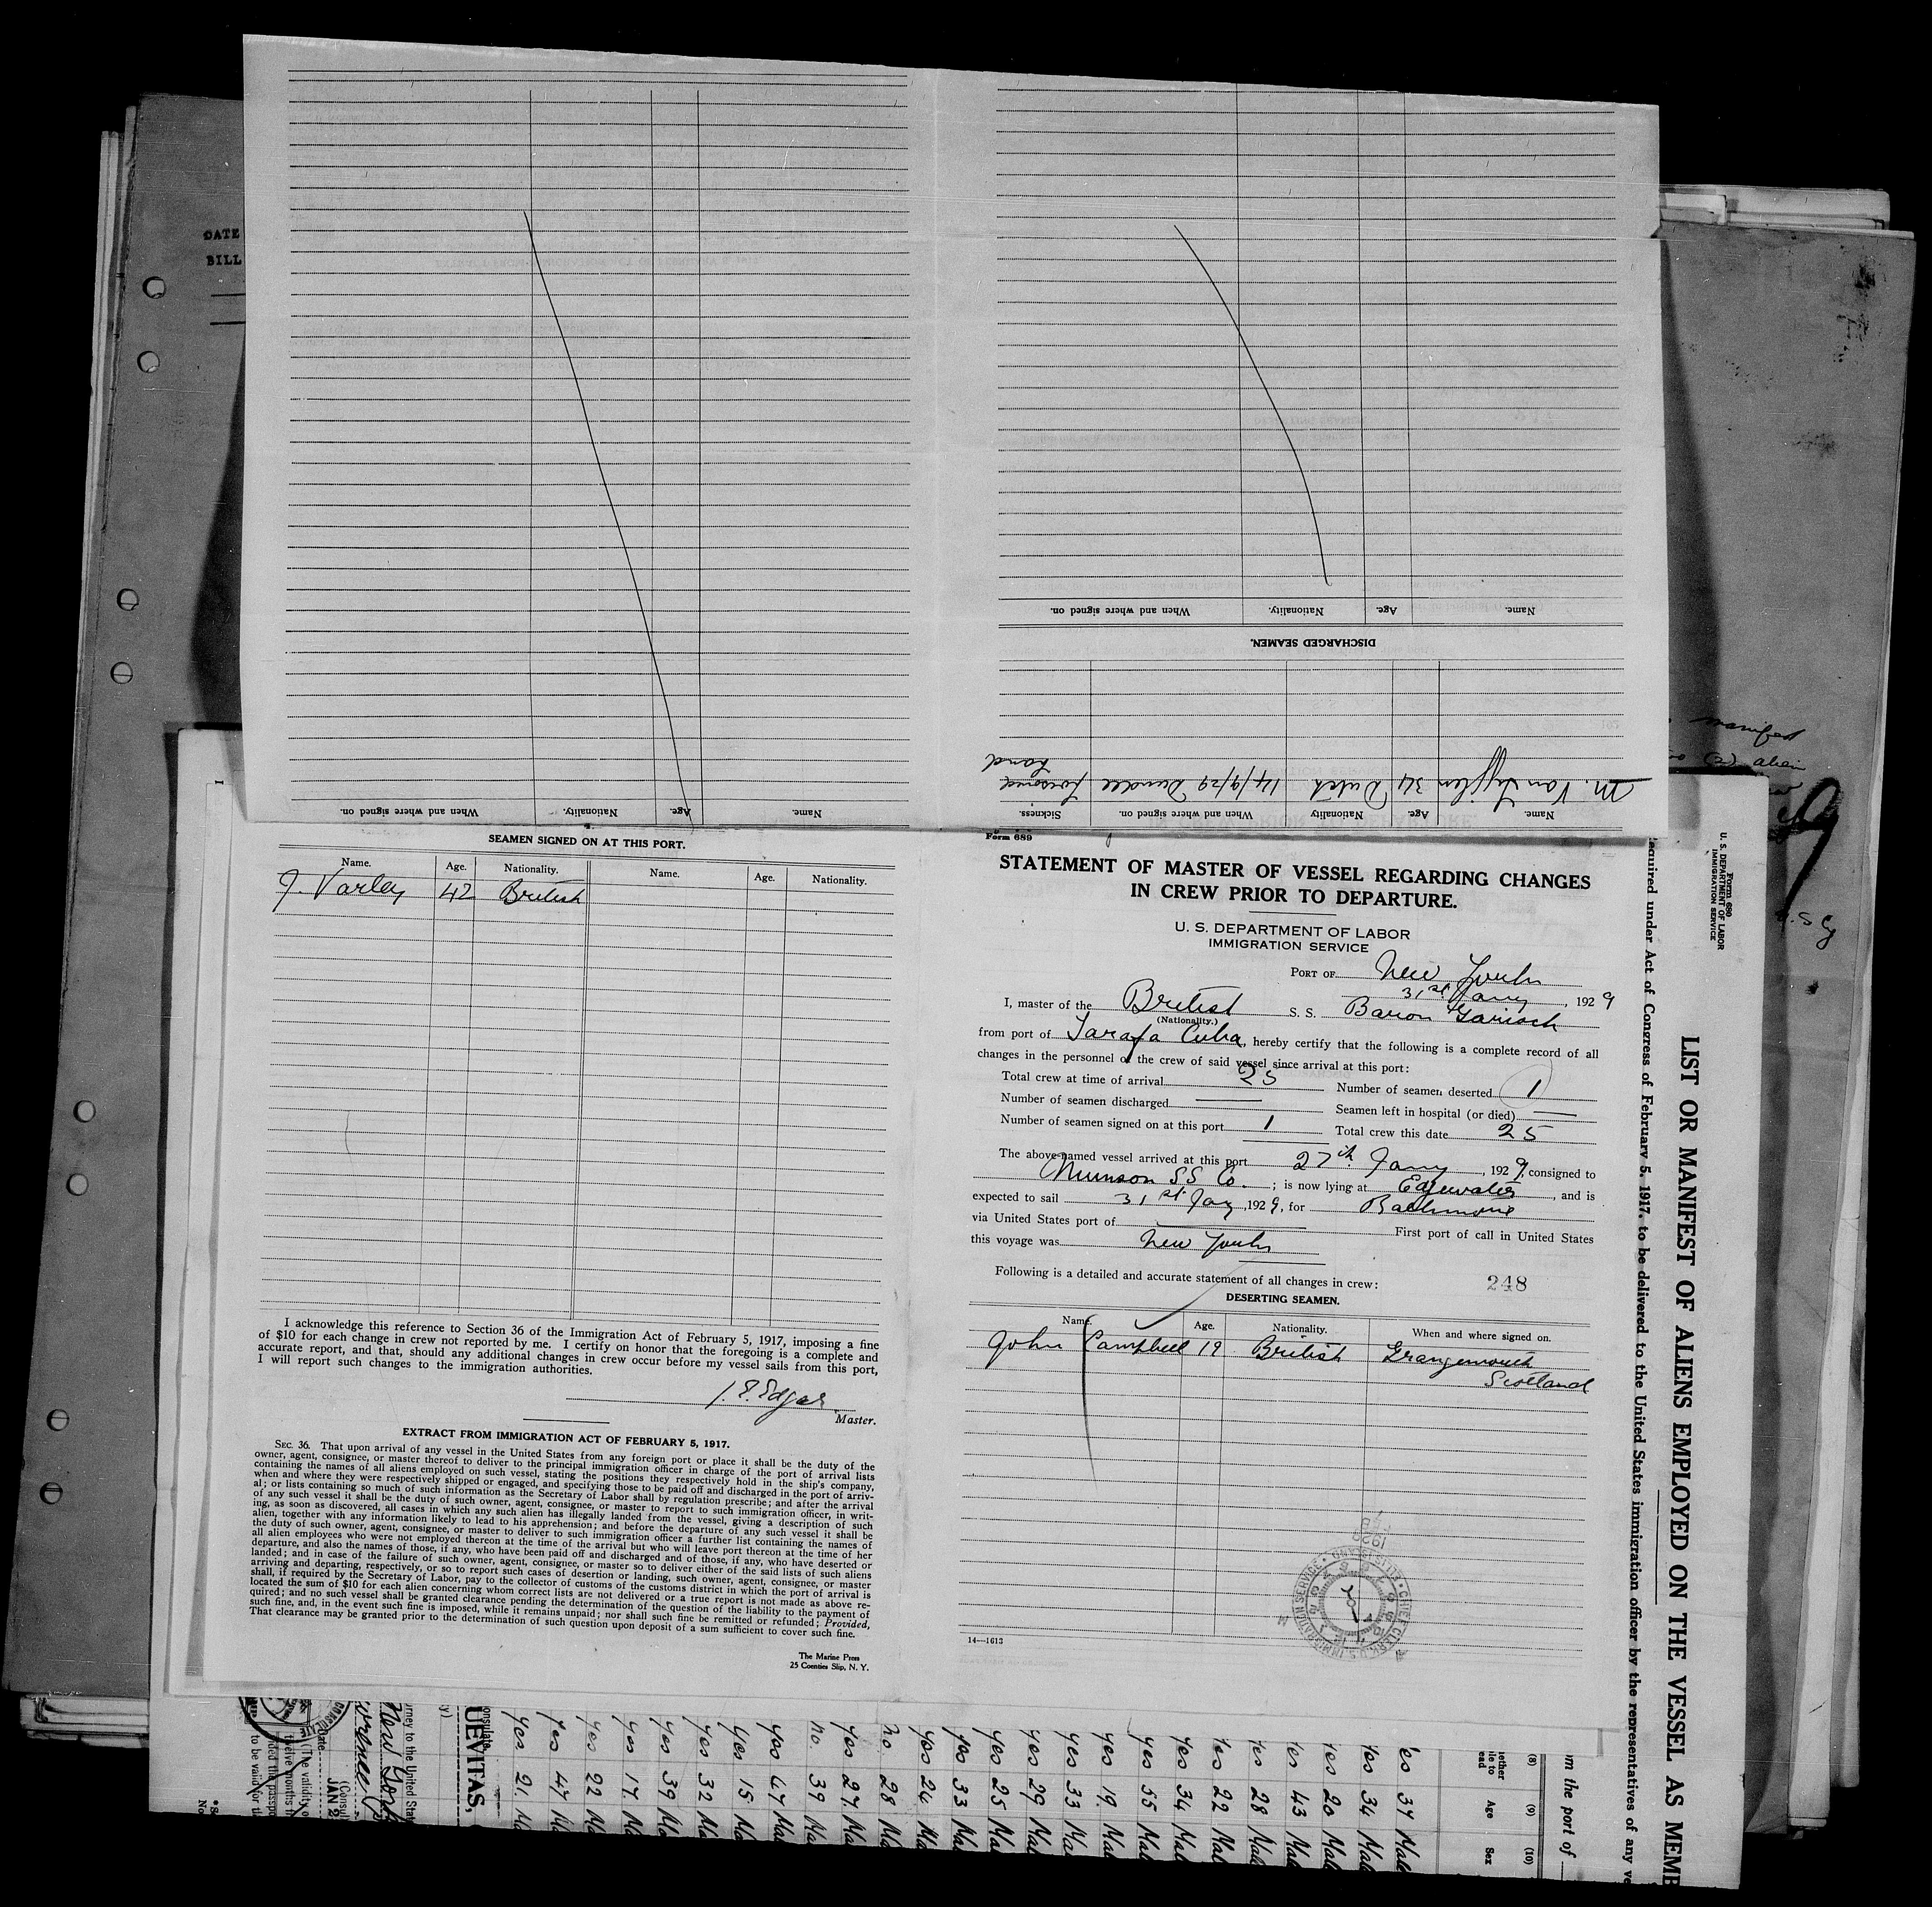 DATE
BILL
When and where signed on. Nationality. Age. Name.
When and where signed on. Nationality. Age. Name.
DISCHARGED SEAMEN.
Land
M. Van 34 Dutch 14/9/29 Dundee
Sickness. When and where signed on. Nationality Age. Name.
manifest
(2) alien
SEAMEN SIGNED ON AT THIS PORT.
Name. Age. Nationality. Name. Age. Nationality.
J. Varley 42 British
I acknowledge this reference to Section 36 of the Immigration Act of February 5, 1917, imposing a fine
of $10 for each change in crew not reported by me. I certify on honor that the foregoing is a complete and
accurate report, and that, should any additional changes in crew occur before my vessel sails from this port,
I will report such changes to the immigration authorities.
J. E. Edgar
Master.
EXTRACT FROM IMMIGRATION ACT OF FEBRUARY 5, 1917.
SEC. 36. That upon arrival of any vessel in the United States from any foreign port or place it shall be the duty of the
owner, agent, consignee, or master thereof to deliver to the principal immigration officer in charge of the port of arrival lists
containing the names of all aliens employed on such vessel, stating the positions they respectively hold in the ship's company,
when and where they were respectively shipped or engaged, and specifying those to be paid off and discharged in the port of arriv-
al; or lists containing so much of such information as the Secretary of Labor shall by regulation prescribe; and after the arrival
of any such vessel it shall be the duty of such owner, agent, consignee, or master to report to such immigration officer, in writ-
ing, as soon as discovered, all cases in which any such alien has illegally landed from the vessel, giving a description of such
alien, together with any information likely to lead to his apprehension; and before the departure of any such vessel it shall be
the duty of such owner, agent, consignee, or master to deliver to such immigration officer a further list containing the names of
all alien employees who were not employed thereon at the time of the arrival but who will leave port thereon at the time of her
departure, and also the names of those, if any, who have been paid off and discharged and of those, if any, who have deserted or
landed; and in case of the failure of such owner, agent, consignee, or master so to deliver either of the said lists of such aliens
arriving and departing, respectively, or so to report such cases of desertion or landing, such owner, agent, consignee, or master
shall, if required by the Secretary of Labor, pay to the collector of customs of the customs district in which the port of arrival is
located the sum of $10 for each alien concerning whom correct lists are not delivered or a true report is not made as above re-
quired; and no such vessel shall be granted clearance pending the determination of the question of the liability to the payment of
such fine, and, in the event such fine is imposed, while it remains unpaid; nor shall such fine be remitted or refunded; Provided,
That clearance may be granted prior to the determination of such question upon deposit of a sum sufficient to cover such fine.
The Marine Press
25 Coenties Slip, N. Y.
Form 689
STATEMENT OF MASTER OF VESSEL REGARDING CHANGES
IN CREW PRIOR TO DEPARTURE.
U. S. DEPARTMENT OF LABOR
IMMIGRATION SERVICE
PORT OF New York
31st Jany, 1929
I, master of the British S. S. Baron Garioch
(Nationality.)
from port of Tarafa Cuba, hereby certify that the following is a complete record of all
changes in the personnel of the crew of said vessel since arrival at this port:
Total crew at time of arrival 25 Number of seamen deserted 1
Number of seamen discharged Seamen left in hospital (or died)
Number of seamen signed on at this port 1 Total crew this date 25
The above-named vessel arrived at this port 27th Jany, 1929, consigned to
Munson SS Co. ; is now lying at Edgewater, and is
expected to sail 31st Jany, 1929, for Baltimore
via United States port of First port of call in United States
this voyage was New York
Following is a detailed and accurate statement of all changes in crew:
248
DESERTING SEAMEN.
Name. Age. Nationality. When and where signed on.
John Campbell 19 British Grangemouth
Scotland
CHIEF CLERK U.S. IMMIGRATION SERVICE · ELLIS ISLAND
14—1613
Form 680
U. S. DEPARTMENT OF LABOR
IMMIGRATION SERVICE
LIST OR MANIFEST OF ALIENS EMPLOYED ON THE VESSEL AS MEMB
equired under Act of Congress of February 5, 1917, to be delivered to the United States immigration officer by the representatives of any ve
m the port of
(8) (9) (10)
Age Sex
es 37 Male
es 34 Mal
es 20 Mal
es 43 Mal
es 28 Mal
es 22 Mal
yes 34 Mal
yes 55 Mal
yes 19. Mal
yes 33 Ma
yes 29 Mal
yes 25 Mal
yes 33 Mal
yes 24 Ma
no. 28 Ma
yes 27. Ma
no. 39 Ma
yes 47 Mal
yes 15 Ma
yes 32 Ma
yes 39 Ma
yes 17. Ma
yes 22 Ma
yes 47 Ma
yes 21. M
UEVITAS,
rney to the United Stat
New York
JAN 2
(The validity o
twelve months
to be valid for t